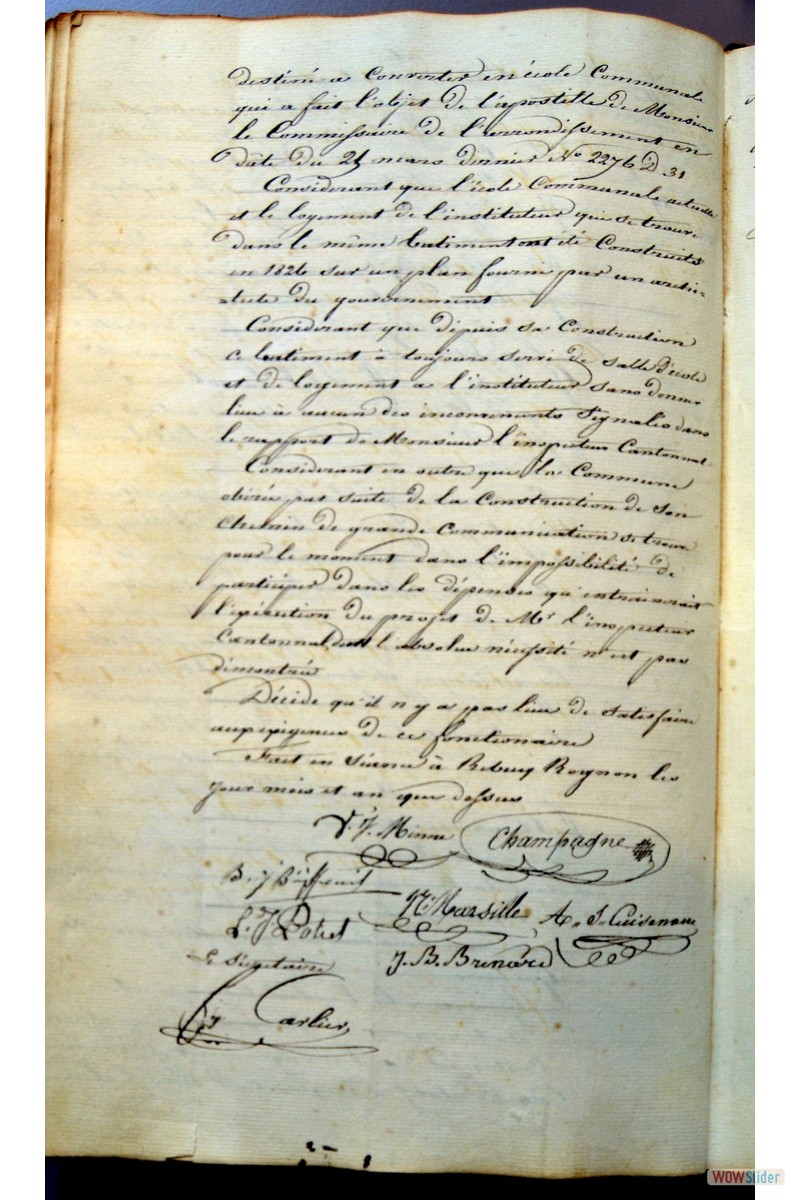 destiné a Converter en école Communale
qui a fait l'objet de l'apostille de Monsieur
le Commissaire de l'arrondissement en
date du 21 mars dernier N° 2276 D 31
Considerant que l'école Communale actuelle
et le logement de l'instituteur qui se trouve
dans le même batiment ont été Construits
en 1826 sur un plan fourni par un archi-
tecte du gouvernement
Considerant que depuis sa Construction
ce batiment à toujours servi de salle d'école
et de logement a l'instituteur sans donner
lieu à aucun des inconvenients Signalés dans
le rapport de Monsieur l'inspecteur Cantonnal
Considerant en outre que la Commune
obérée par suite de la Construction de Son
chemin de grande Communication se trouve
pour le moment dans l'impossibilité de
participer dans les dépenses qu'entrainerait
l'exécution du projet de Mr l'inspecteur
Cantonnal dont l'absolue nécessité n'est pas
démontrée
Décide qu'il n'y a pas lieu de satisfaire
aux exigences de ce fonctionaire
Fait en Séance à Rebecq Rognon les
jour mois et an que dessus
V. J. Minne Champagne
B. J.
L. J. Potel N. Marsille A. J. Cuisenaire
Le Secrétaire J. B. Brenard
J Carlier
WOWSlider